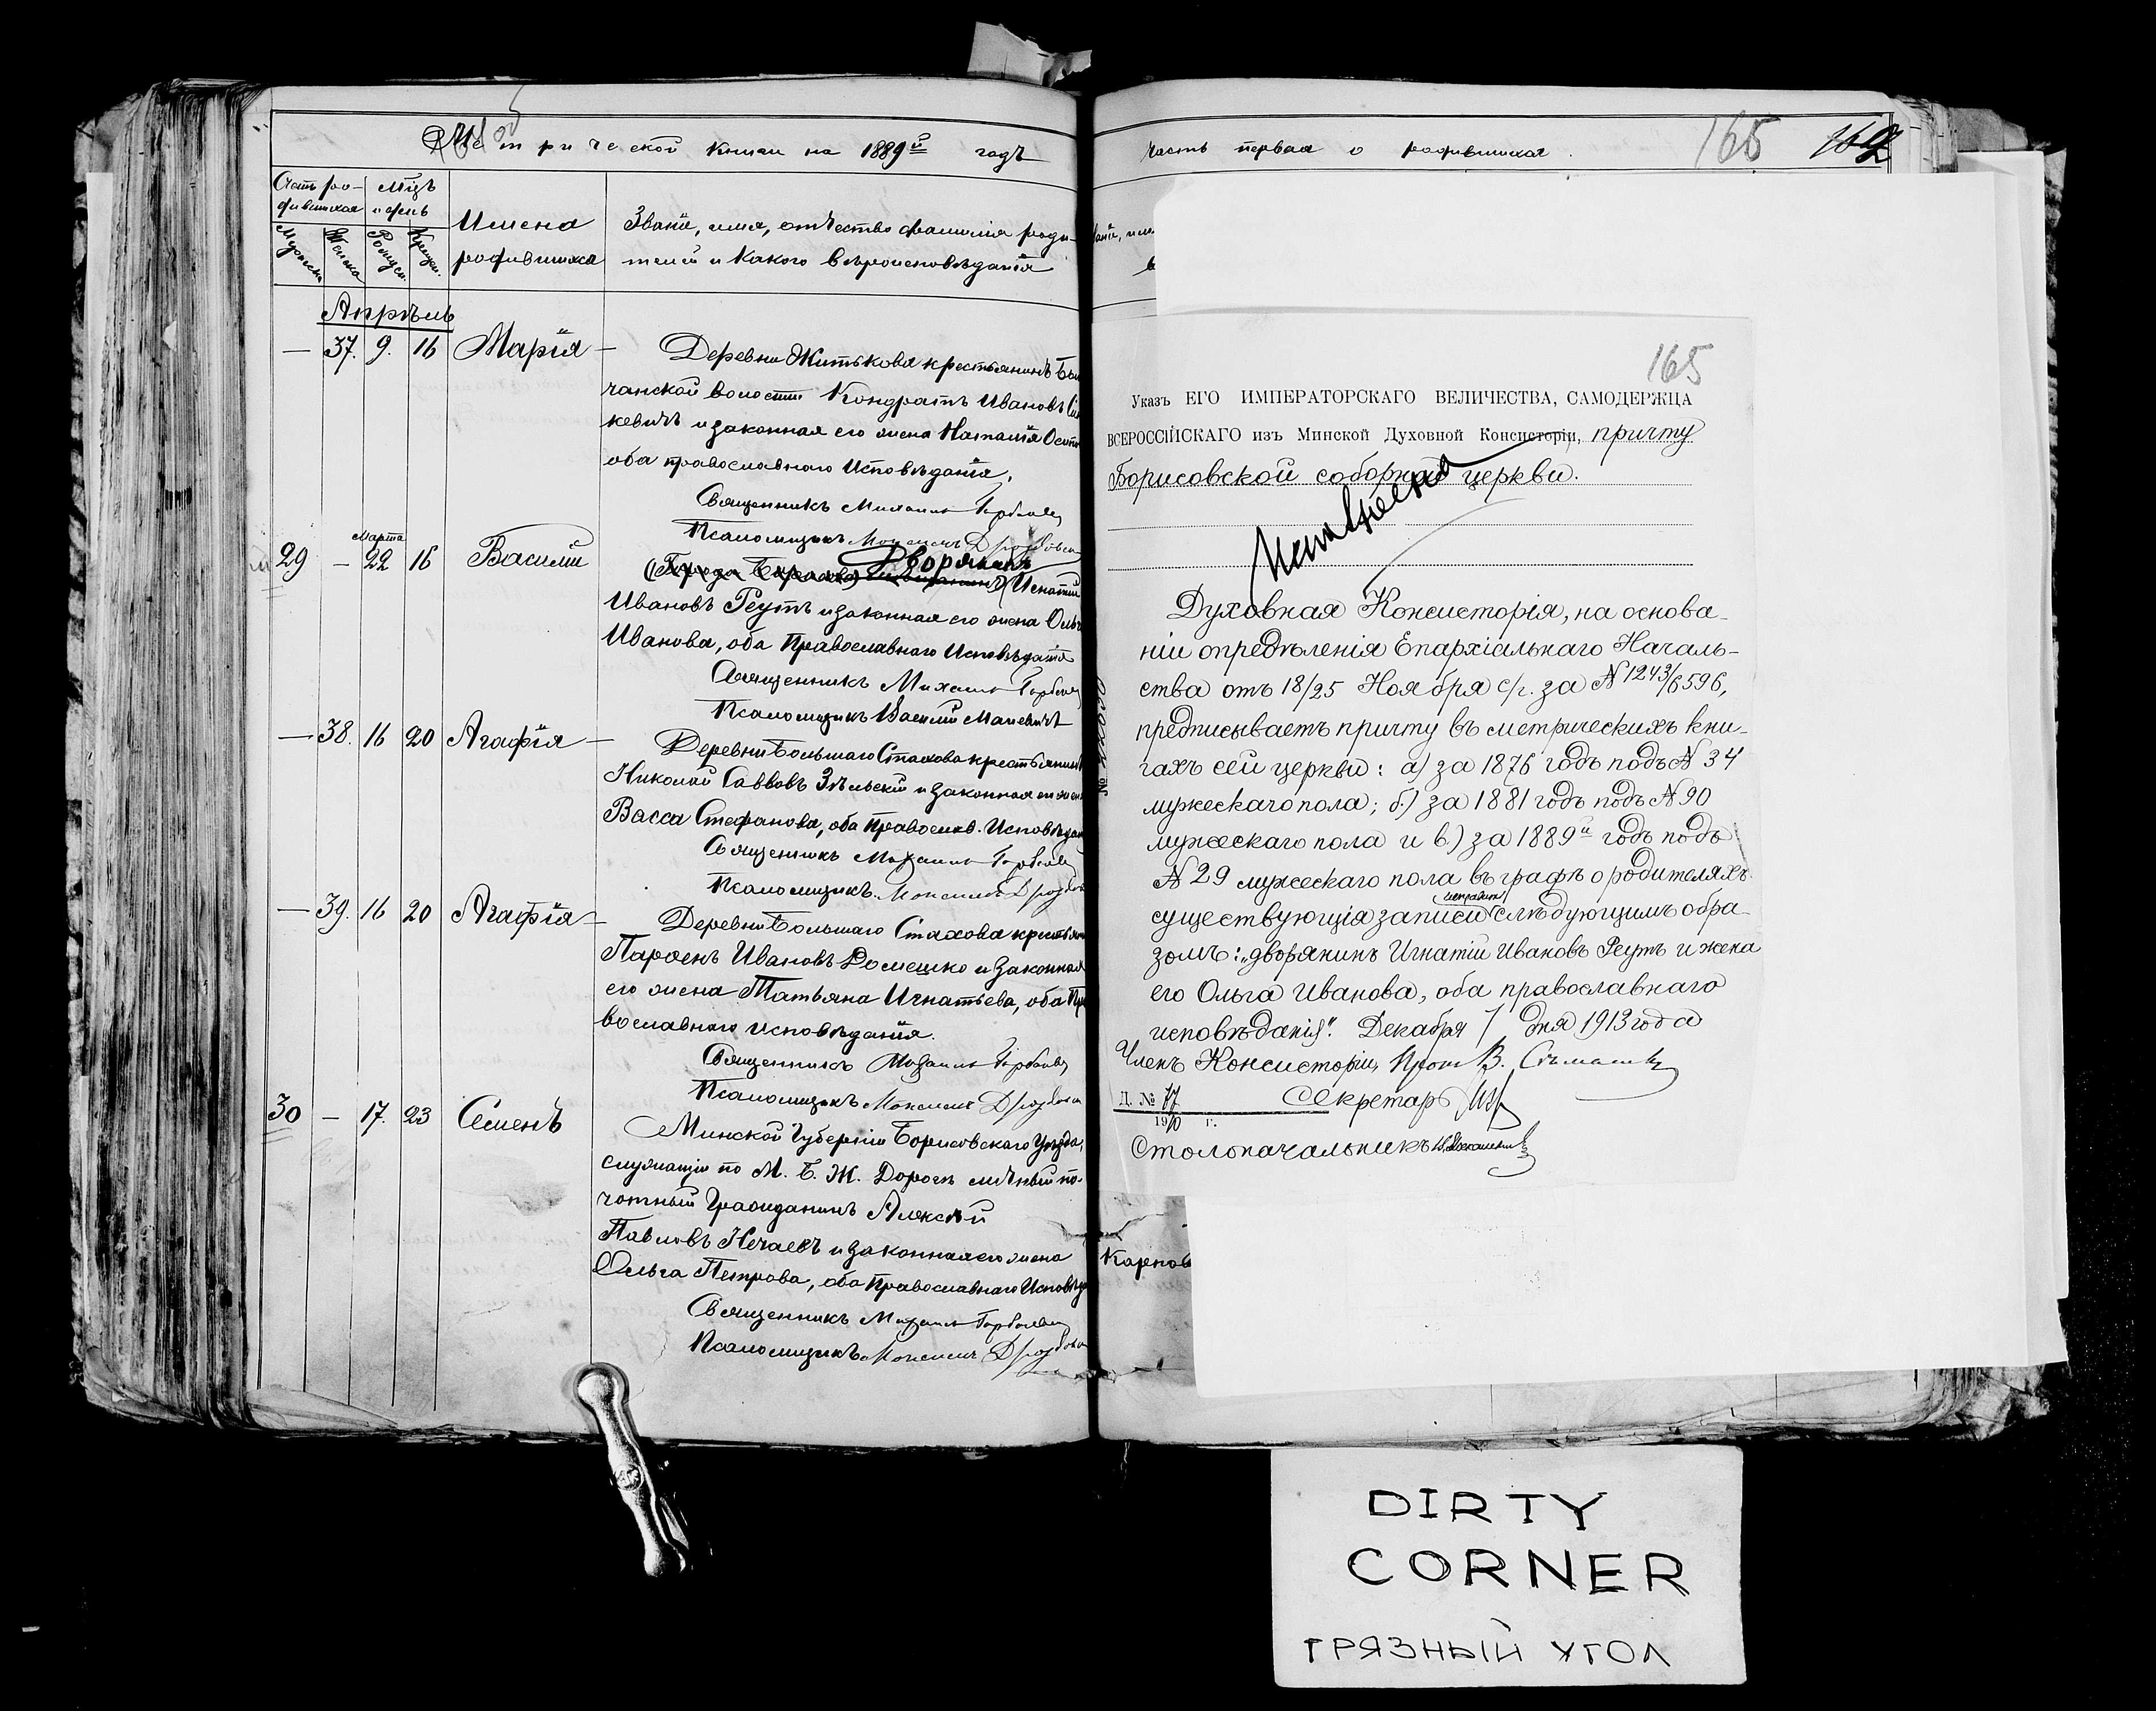 Метрической книги на 1889й годъ
Счетъ ро-
дившихся
Мѣсяцъ
и день
Мужеска
Женска
Рожден.
Крещен.
Имена
родившихся
Званіе, имя, отчество фамилія роди-
телей и какого вѣроисповѣданія
Апрѣль
— 37. 9. 16 Марія —
Деревни Житькова крестьянинъ
чанской волости Кондратъ Ивановъ
кевичъ и законная его жена Наталія Осип
оба православнаго Исповѣданія.
Священникъ Михаилъ
Псаломщикъ
Марта
29 — 22 16 Василій
Дворянинъ
(Города Борисова) (Игнатій
Ивановъ Реутъ и законная его жена Ольга
Иванова, оба Православнаго Исповѣданія
Священникъ Михаилъ
Псаломщикъ Василій
— 38. 16 20 Агафія —
Деревни Большаго Стахова крестьянинъ
Николай Саввовъ и законная его жена
Васса Стефанова, оба Православ. Исповѣдан
Священникъ Михаилъ
Псаломщикъ
— 39. 16 20 Агафія —
Деревни Большаго Стахова крестьян
Парфенъ Ивановъ Домешко и законная
его жена Татьяна Игнатьева, оба Пра
вославнаго исповѣданія.
Священникъ Михаилъ
Псаломщикъ
30 — 17. 23 Семенъ
Минской Губерніи Борисовскаго Уѣзда,
служащій по М. Б. Ж. Дорогѣ личный по-
чотный Гражданинъ Алексѣй
Павловъ Нечаевъ и законная его жена
Ольга Петрова, оба Православнаго Исповѣда
Священникъ Михаилъ
Псаломщикъ
часть первая о родившихся.
165
Карпов
165
Указъ ЕГО ИМПЕРАТОРСКАГО ВЕЛИЧЕСТВА, САМОДЕРЖЦА
ВСЕРОССІЙСКАГО изъ Минской Духовной Консисторіи, причту
Борисовской соборной церкви.
Исправлено
Духовная Консисторія, на основа-
ніи опредѣленія Епархіальнаго Началь-
ства отъ 18/25 Ноября с/г. за № 1243/6596,
предписываетъ причту въ метрическихъ кни-
гахъ сей церкви: а) за 1876 годъ подъ № 34
мужескаго пола; б) за 1881 годъ подъ № 90
мужескаго пола и в) за 1889й годъ подъ
№ 29 мужескаго пола въ графѣ о родителяхъ
исправить
существующія записи слѣдующимъ обра-
зомъ: „дворянинъ Игнатій Ивановъ Реутъ и жена
его Ольга Иванова, оба православнаго
исповѣданія“. Декабря 7 дня 1913 года
Членъ Консисторіи, Прот. В.
Д. № 77 Секретарь
1910 г.
Столоначальникъ
DIRTY
CORNER
ГРЯЗНЫЙ УГОЛ